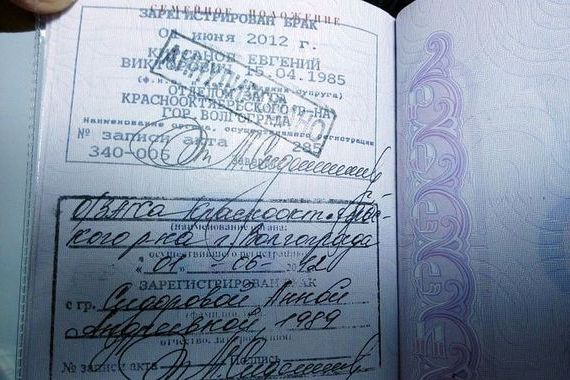 СЕМЕЙНОЕ ПОЛОЖЕНИЕ
ЗАРЕГИСТРИРОВАН БРАК
ИЮНЯ 2012 г.
ЕВГЕНИЙ
15.04.1985
супруга)
КРАСНООКТЯБРЬСКОГО Р-НА
ГОР. ВОЛГОГРАДА
Наименование органа, осуществившего регистрацию
№ записи акта 285
340-006
О/ЗАГСа Краснооктябрьс-
кого р-на г. Волгограда
(наименование органа,
осуществившего регистрацию)
"01" - 06 - 2012
ЗАРЕГИСТРИРОВАН БРАК
с гр. Сидоровой Анной
Андреевной, 1989
отчество, дата рождения)
№ записи акта Подпись